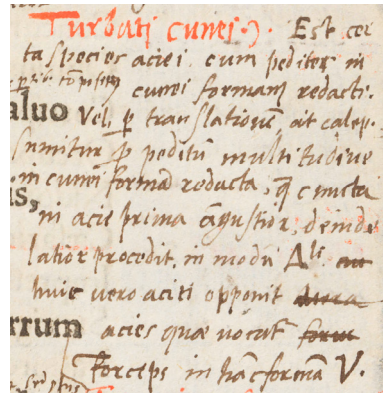 Turbati cunei. Est cer
ta species aciei cum pedites in
cunei formam redacti.
aluo Vel, p translationē, ait calep.
sumitur p peditū multitudine
in cunei formā redacta, q̃ cuncta
us,
in acie prima āgustior, deinde
latior procedit, in modū A
huic vero aciei opponit
rrum acies quae vocat
Forceps in hāc formā V.